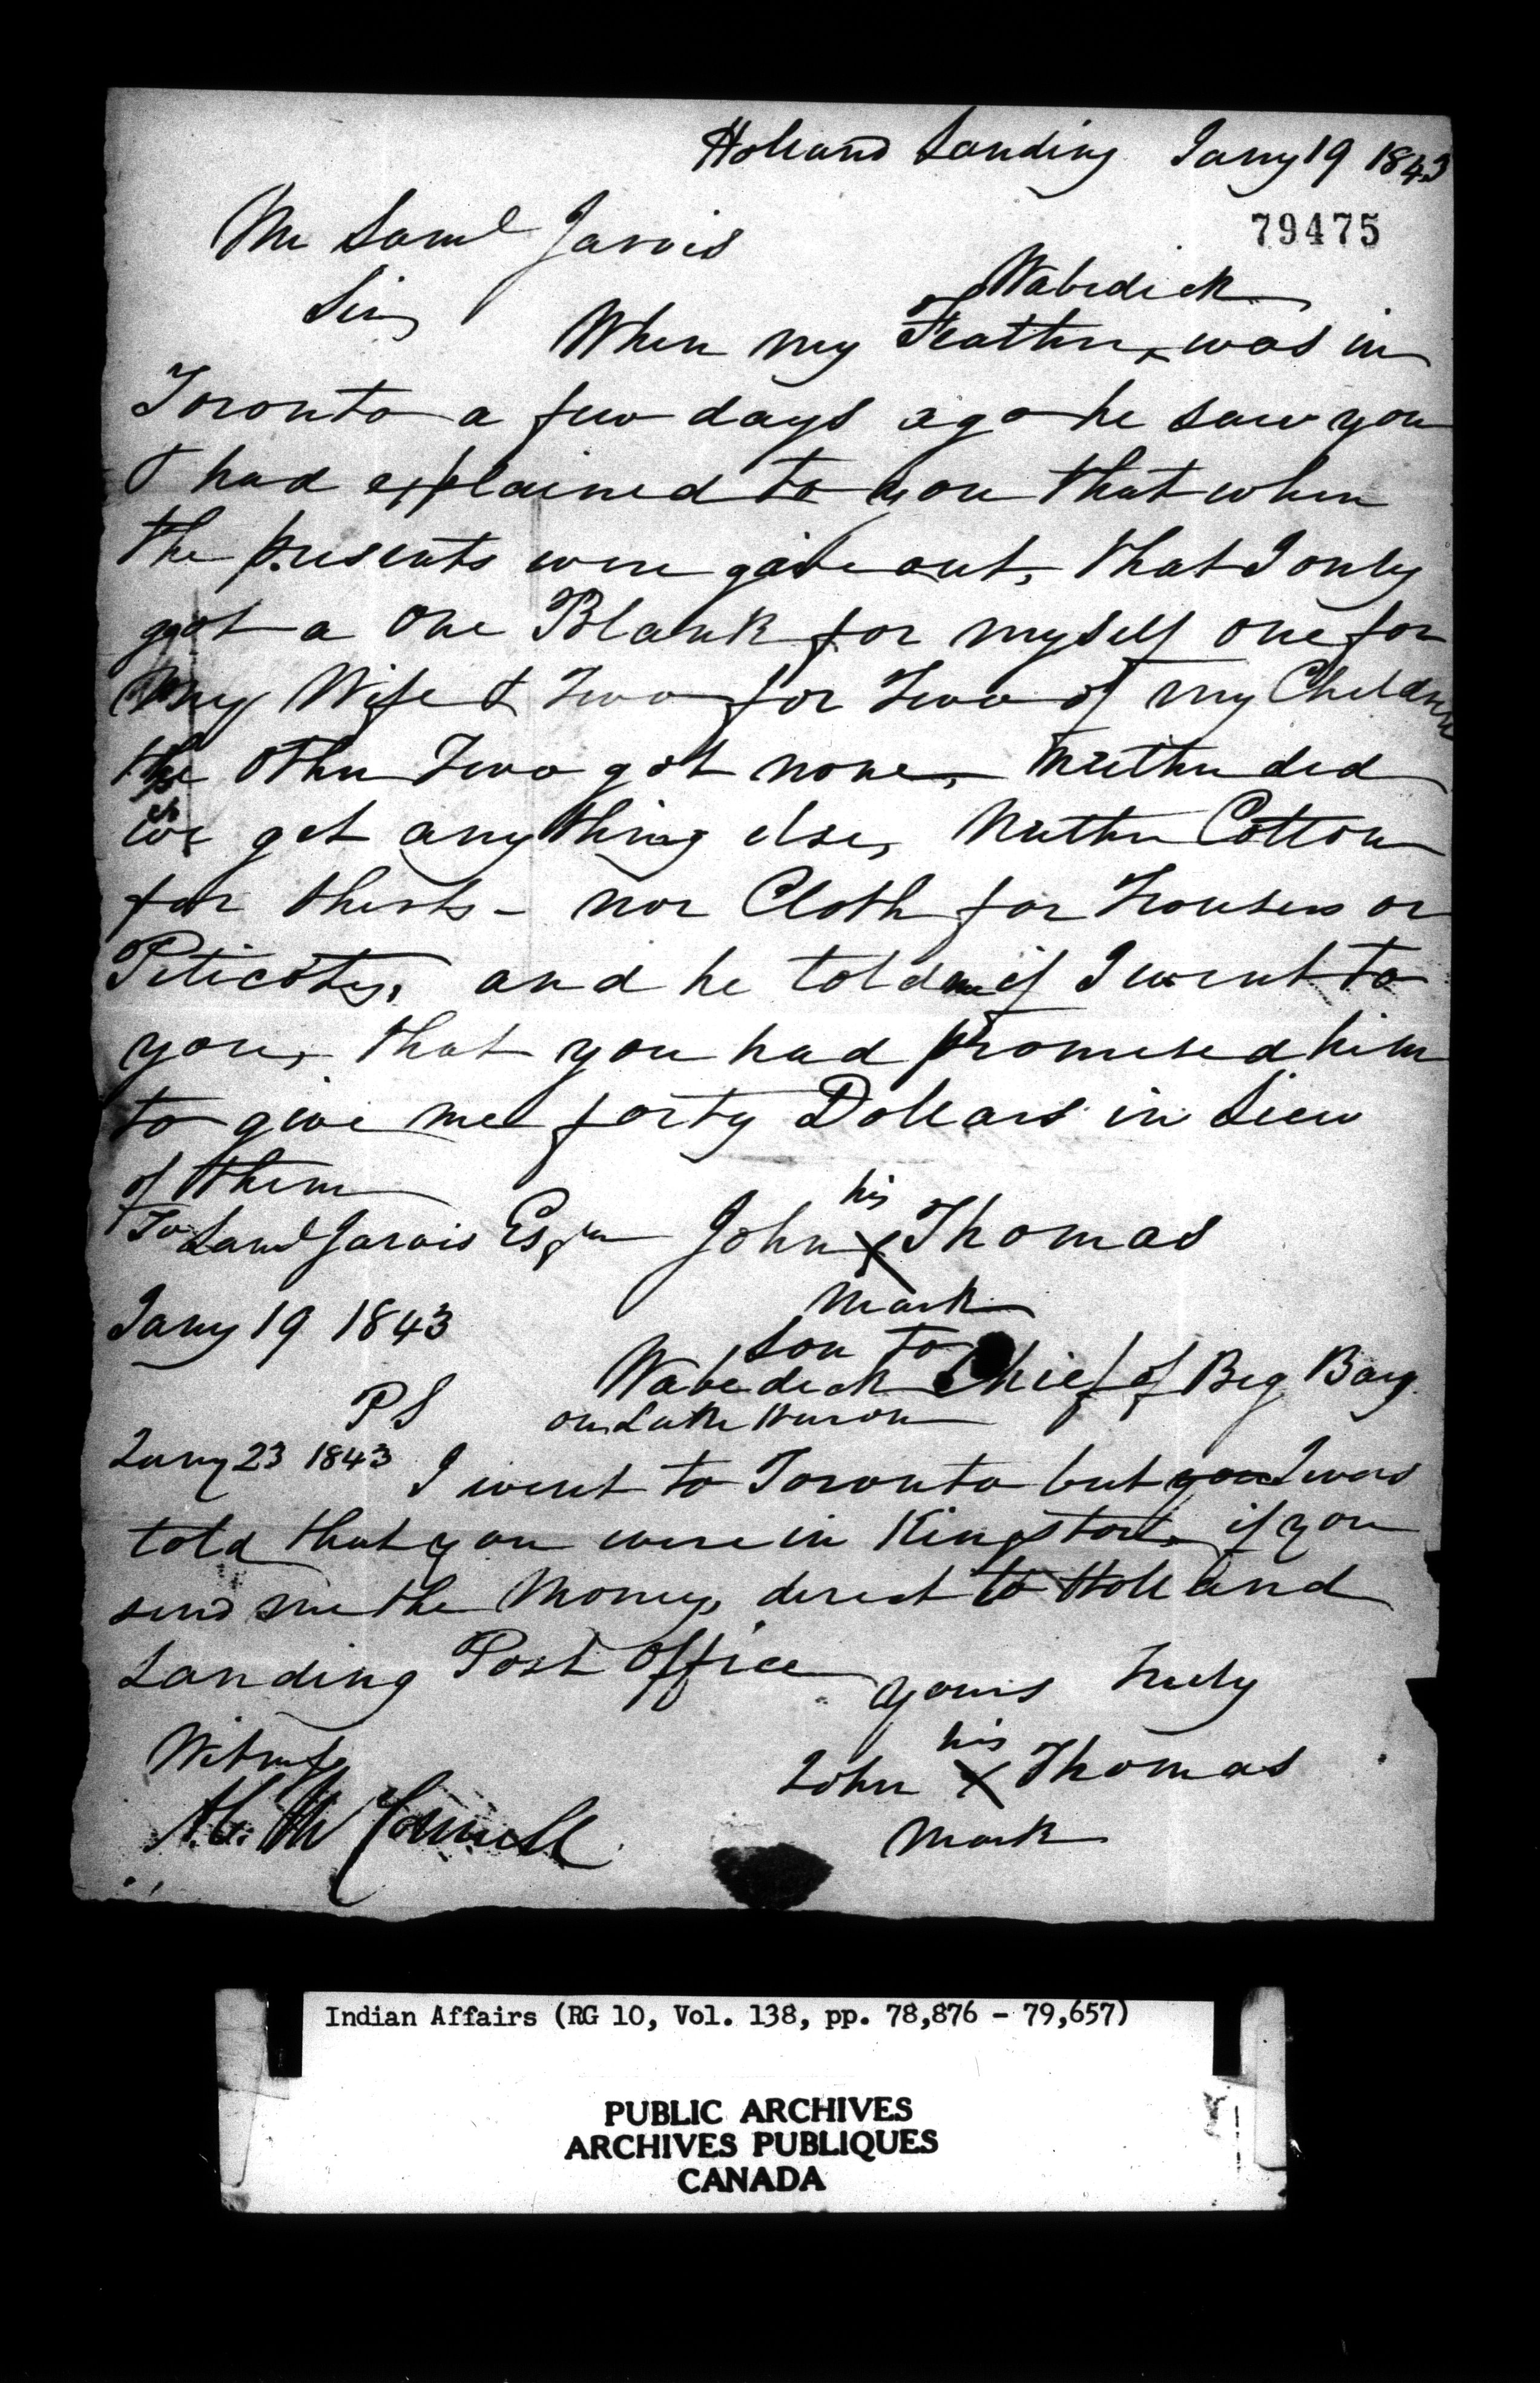 Holland Landing Jany 19 1843
79475
Mr Saml Jarvis
Sir
Wabedick
When my Feather ^ was in
Toronto a few days ago he saw you
& had explained to you that when
the presents were gave out, that I only
got a one Blank for myself one for
my Wife & Two for Two of my Children
the other Two got none, Neither did
we get any thing else, Neither Cotton
for Sherts - nor Cloth for Trousers or
Peticots, and he told me if I went to
you, that you had promised him
to give me forty Dollars in Lieu
of them
To Saml Jarvis Esqr John his X Thomas
mark
Jany 19 1843
Son to
Wabedick Chief of Beg Bay
on Lake Huron
PS
Jany 23 1843 I went to Toronto but you I was
told that you were in Kingston, if you
send me the Money, derect to Holland
Landing Post Office
yours truly
his
Witness John X Thomas
mark
Indian Affairs (RG 10, Vol. 138, pp. 78,876 - 79,657)
PUBLIC ARCHIVES
ARCHIVES PUBLIQUES
CANADA